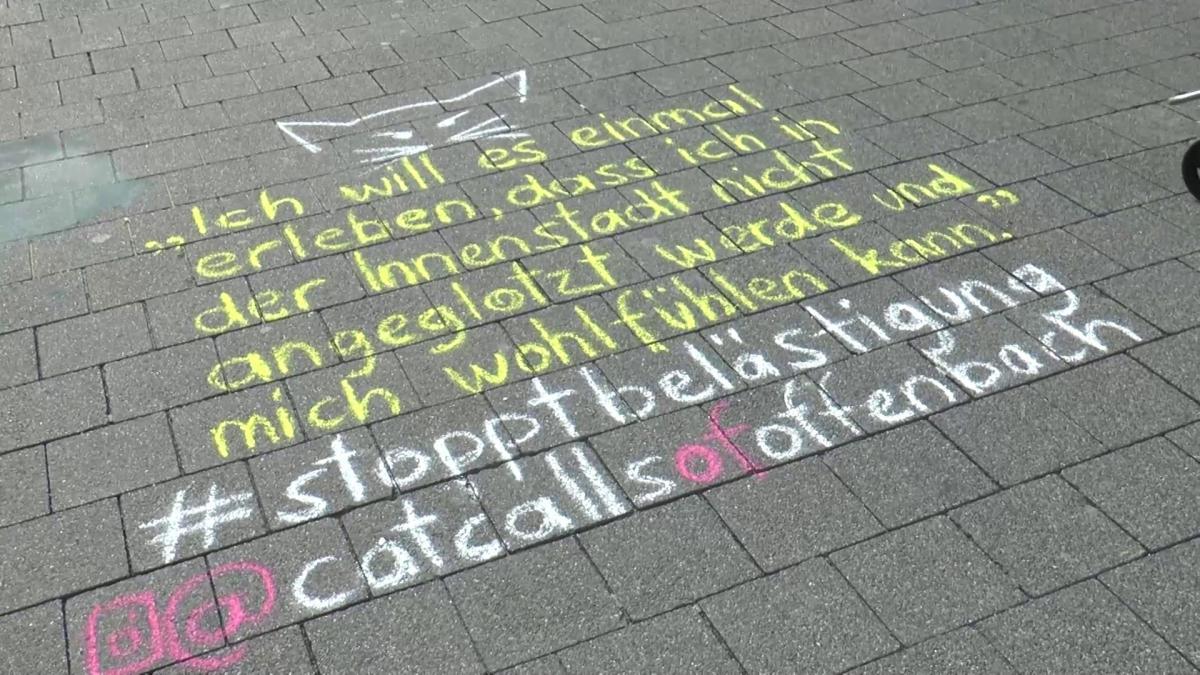 „Ich will es einmal
erleben, dass ich in
der Innenstadt nicht
angeglotzt werde und
mich wohlfühlen kann.”
#stopptbelästigung
@catcallsofoffenbach